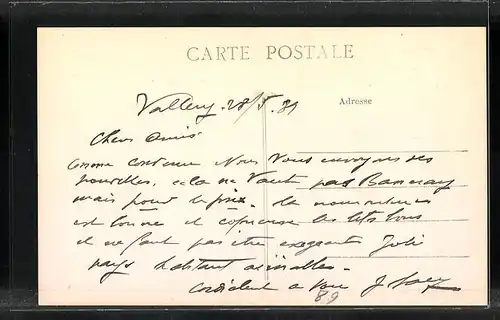 CARTE POSTALE
Vallery. 28/5.31
Adresse
Chers Amis
Comme convenu Nous Vous envoyons des
nouvelles, cela ne Vaut pas
mais pour le prix. la nourriture
est bonne et copieuse les lits bons
il ne faut pas être exigeant Joli
pays
cordialement a vous
89